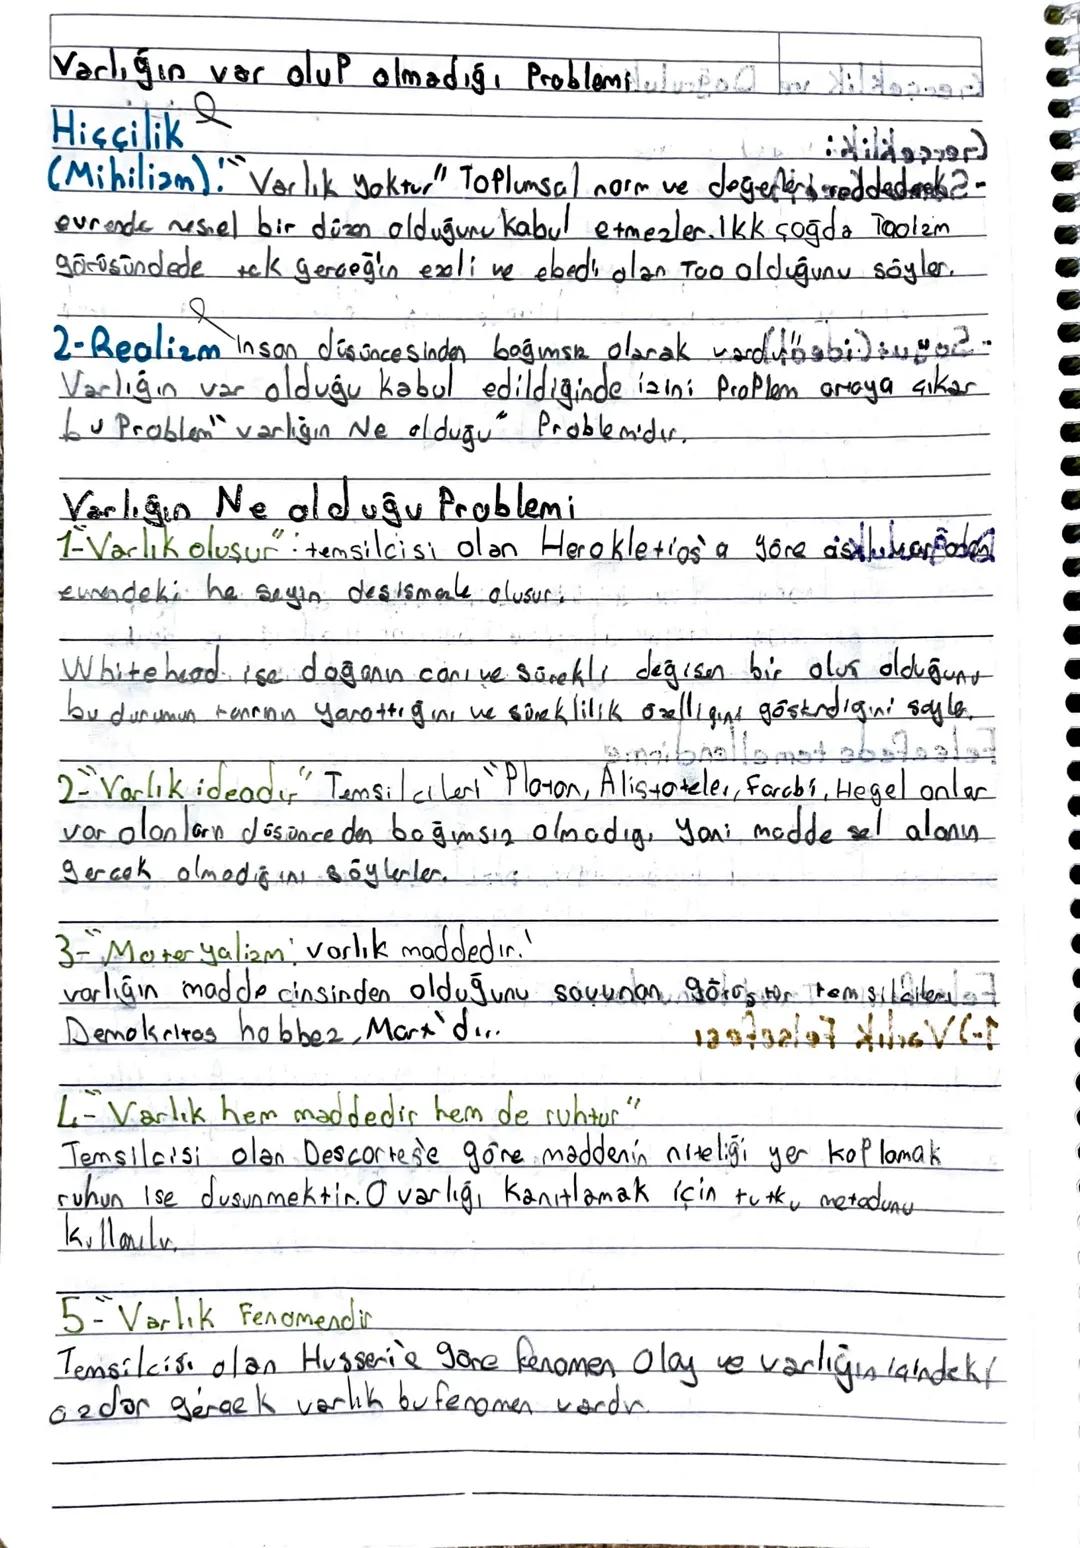 Varlığın var olup olmadığı Problemi
Hiççilik
(Mihilizm): "Varlık yoktur" Toplumsal norm ve değerleri reddederek
evrende nesnel bir düzen olduğunu kabul etmezler. Ikk çoğda Taolzm
görüsündede tek gerçeğin ezeli ve ebedi olan Tao olduğunu söyler.
2-Realizm insan düsüncesinden bağımsız olarak vardır
Varlığın var olduğu kabul edildiğinde izini Problem ortaya çıkar
bu Problem "varlığın Ne olduğu" Problemidir.
Varlığın Ne olduğu Problemi
1-"Varlık oluşur": temsilcisi olan Herakletios'a göre
evrendeki he seyin desismezle olusur.
Whitehead ise doğanın canı ve sürekli değisen bir olus olduğunu
bu durumun tanrının yarattığını ve süreklilik özelligini gösterdigini söyle.
2-"Varlık ideadır" Temsilcileri "Platon, Alistoteles, Farabi, Hegel onlar
var olanların düsünceden bağımsız olmadıgı yani madde sel alanın
gercek olmadığını söylerler.
3-"Moteryalizm: varlık maddedir."
varlığın madde cinsinden olduğunu savunan görüstür temsilcileri
Demokritos hobbez, Marx'dır.
4-"Varlık hem maddedir hem de ruhtur"
Temsilcisi olan Descortes'e göre maddenin niteliği yer koplamak
ruhun ise dusunmektir. O varlığı kanıtlamak için tutku metodunu
kullanılır.
5-"Varlık Fenomendir
Temsilcisi olan Husserl'e göre fenomen olay ve varlığın içindeki
özdür gerçek varlık bu fenomen vardır.